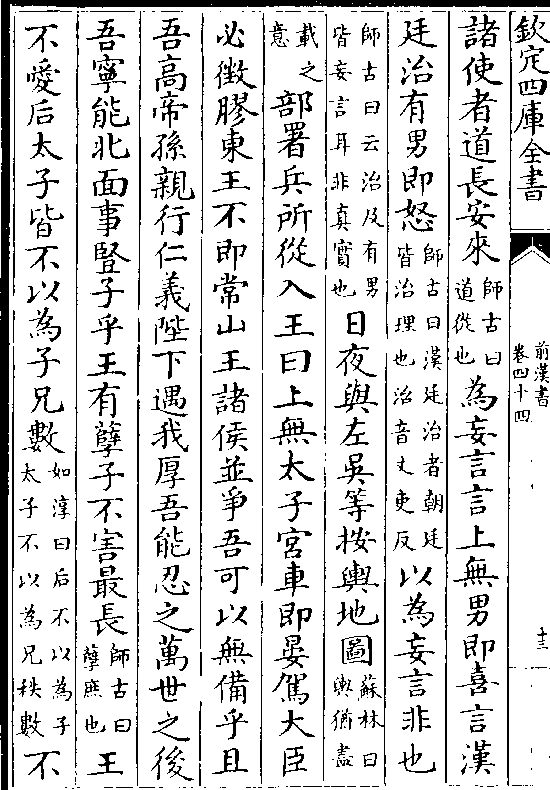 欽定四庫全書
前漢書
卷四十四
十三
諸使者道長安來師古曰道從也為妄言言上無男即喜言漢
廷治有男即怒師古曰漢廷治者朝廷皆治理也治音丈吏反以為妄言非也
師古曰云治及有男皆妄言耳非真實也日夜與左吳等按輿地圖蘇林曰輿猶盡
載之意部署兵所從入王曰上無太子宮車即晏駕大臣
必徵膠東王不即常山王諸侯並爭吾可以無備乎且
吾高帝孫親行仁義陛下遇我厚吾能忍之萬世之後
吾寧能北面事豎子乎王有孽子不害最長師古曰孽庶也王
不愛后太子皆不以為子兄數如淳曰后不以為子太子不以為兄秩數不